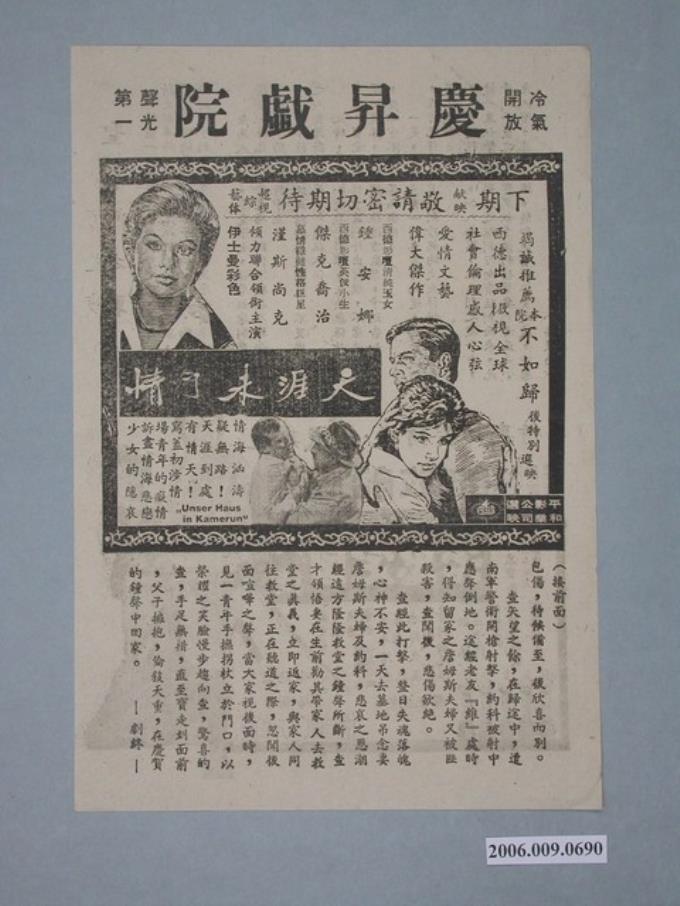 冷氣
開放
慶昇戲院
聲光
第一
下期獻映敬請密切期待超視綜藝體
竭誠推薦本院不如歸後特別選映
西德出品 報視全球
社會倫理感人心弦
愛情文藝
偉大傑作
西德影壇清純玉女
鍾安娜
西德影壇英俊小生
傑克喬治
漢斯尚克
領力聯合領銜主演
伊士曼彩色
天涯未了情
情海洶濤
疑無路！
天涯到處
有情天！
寫盡初涉情
場青年的癡情
訴盡情海悲戀
少女的隱哀
„Unser Haus
in Kamerun“
平和影業公司選映
（接前面）
包傷，待候備至，後欣喜而別。
查失望之餘，在歸途中，遭
南軍警衛開槍射擊，約科被射中
應聲倒地。途經老友『維』處時
，得知留家之詹姆斯夫婦又被匪
殺害，查聞機，悲傷欲絕。
查經此打擊，整日失魂落魄
，心神不安，一天去墓地弔念妻
詹姆斯夫婦及約科，悲哀之思潮
經遠方隆隆教堂之鐘聲所斷，查
才領悟妻在生前勸其帶家人去教
堂之真義，立即返家，與家人同
往教堂，正在聽道之際，忽聞後
面喧嘩之聲，當大家視後面時，
見一青年手撫拐杖立於門口，以
榮耀之笑臉慢步趨向查，驚喜的
查，手足無措，直至寶走到面前
，父子擁抱，倫敍天重，在慶賀
的鐘聲中回家。 —劇終—
2006.009.0690